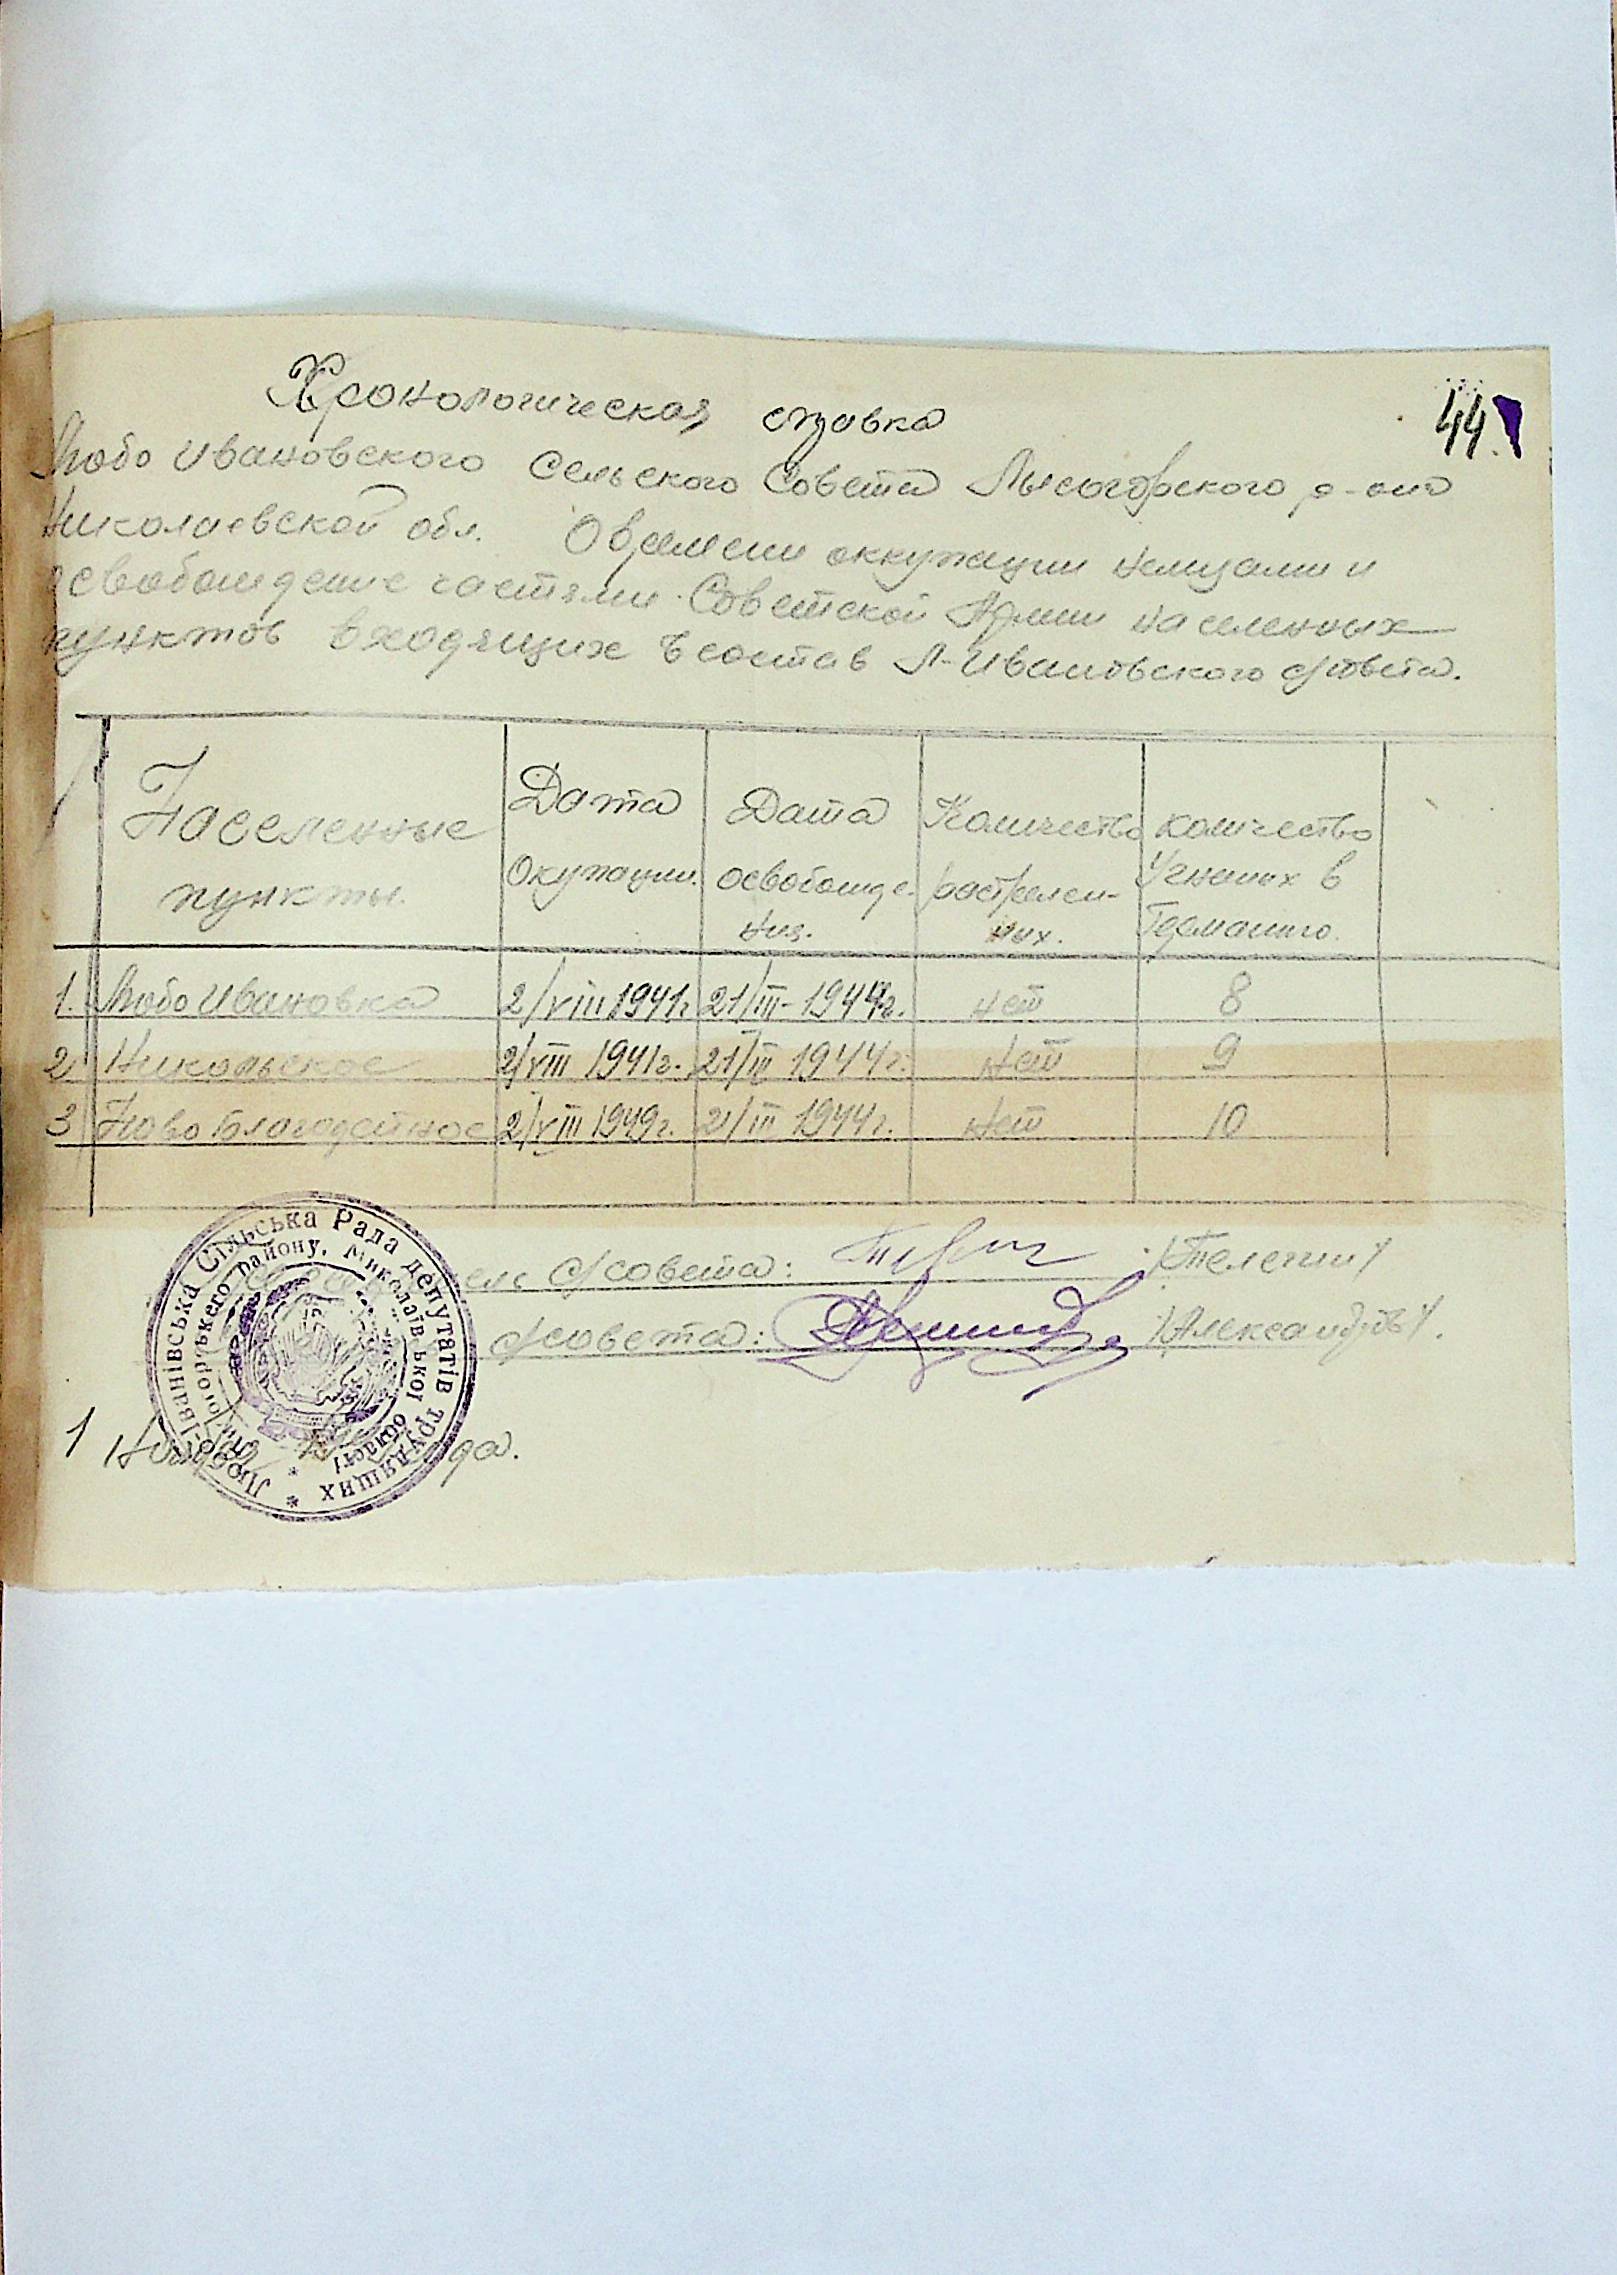 44
Хронологическая справка
Любо Ивановского Сельского Совета Лысогорского р-она
Николаевской обл. О времени оккупации немцами и
освобождение частями Советской Армии населенных
пунктов входящих в состав Л-Ивановского с/совета.
Населенные пункты. Дата Окупации. Дата освобожде-ния. Количество растрелен-ных. количество Угнаных в Германию.
1. Любо Ивановка 2/VIII 1941г 21/III-1944г. нет 8
2 Никольское 2/VIII 1941г. 21/III 1944г. Нет 9
3 Ново Благодатное 2/VIII 1949г. 21/III 1944г. Нет 10
с/совета: /Телегин/
с/совета: /Александров/.
1 года.
Любо-Іванівська Сільська Рада депутатів трудящих *
Лисогорського району, Миколаївської області *